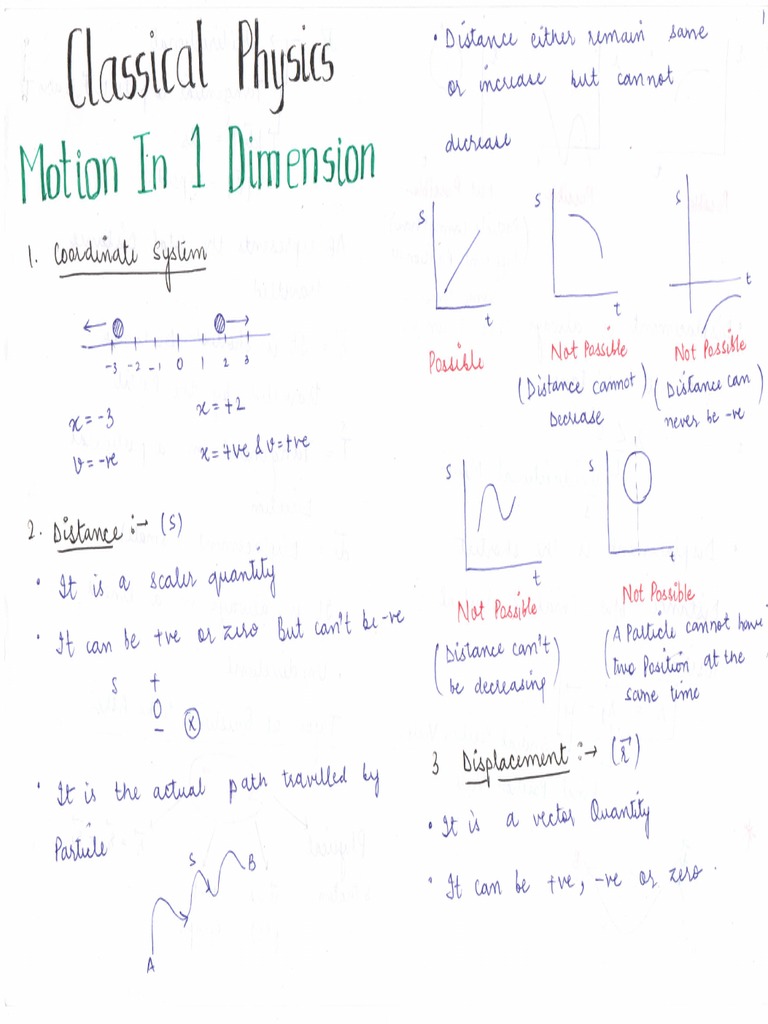 1
Classical Physics
Motion In 1 Dimension
1. Coordinate System
-3 -2 -1 0 1 2 3
x=-3 x=+2
v=-ve x=+ve & v=+ve
2. Distance :→ (S)
• It is a scaler quantity
• It can be +ve or zero But can't be -ve
S +
0
- (x)
• It is the actual path travelled by
Particle
S B
A
• Distance either remain same
or increase but cannot
decrease
S t
Possible
S t
Not Possible
(Distance cannot
Decrease)
S t
Not Possible
(Distance can
never be -ve)
S t
Not Possible
(Distance can't
be decreasing)
S t
Not Possible
(A Particle cannot have
two Position at the
same time
3 Displacement :→ (r⃗)
• It is a vector Quantity
• It can be +ve, -ve or zero.